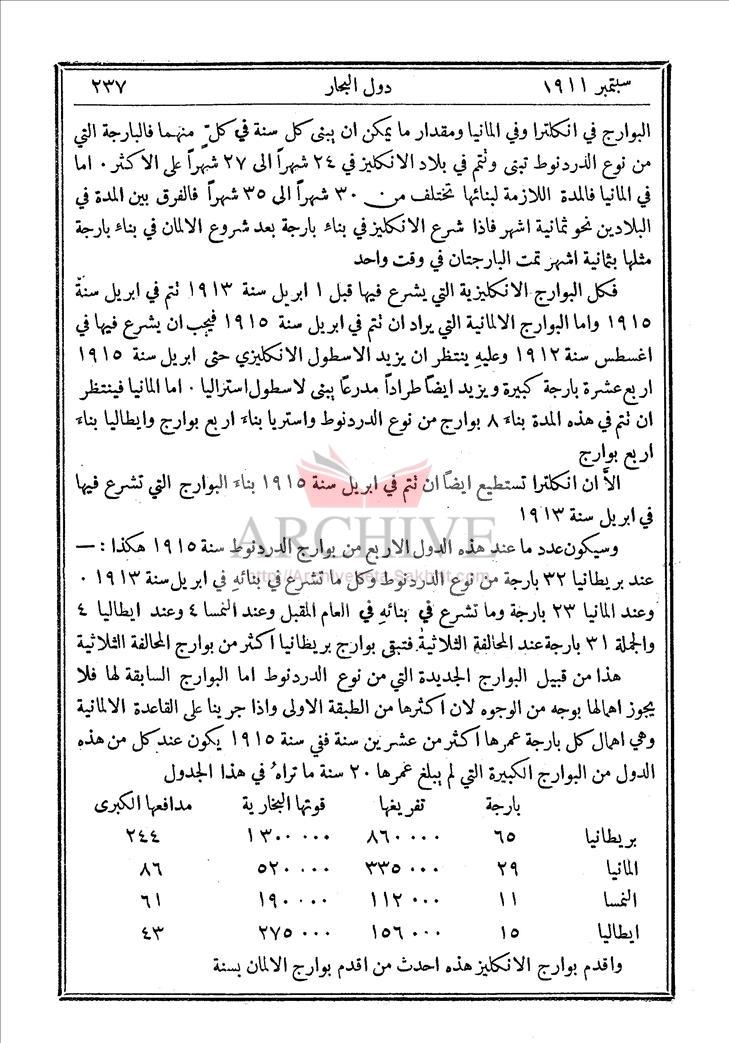 سبتمبر ١٩١١ دول البحار ٢٣٧
البوارج في انكلترا وفي المانيا ومقدار ما يمكن ان يبنى كل سنة في كلّ منهما فالبارجة التي
من نوع الدردنوط تبنى وتتم في بلاد الانكليز في ٢٤ شهراً الى ٢٧ شهراً على الاكثر ٠ اما
في المانيا فالمدة اللازمة لبنائها تختلف من ٣٠ شهراً الى ٣٥ شهراً فالفرق بين المدة في
البلادين نحو ثمانية اشهر فاذا شرع الانكليز في بناء بارجة بعد شروع الالمان في بناء بارجة
مثلها بثمانية اشهر تمت البارجتان في وقت واحد
فكل البوارج الانكليزية التي يشرع فيها قبل ١ ابريل سنة ١٩١٣ تتم في ابريل سنة
١٩١٥ واما البوارج الالمانية التي يراد ان تتم في ابريل سنة ١٩١٥ فيجب ان يشرع فيها في
اغسطس سنة ١٩١٢ وعليهِ ينتظر ان يزيد الاسطول الانكليزي حتى ابريل سنة ١٩١٥
اربع عشرة بارجة كبيرة ويزيد ايضاً طراداً مدرعاً يبنى لاسطول استراليا ٠ اما المانيا فينتظر
ان تتم في هذه المدة بناءَ ٨ بوارج من نوع الدردنوط واستريا بناءَ اربع بوارج وايطاليا بناءَ
اربع بوارج
الاَّ ان انكلترا تستطيع ايضاً ان تتم في ابريل سنة ١٩١٥ بناءَ البوارج التي تشرع فيها
في ابريل سنة ١٩١٣
ARCHIVE
وسيكون عدد ما عند هذه الدول الاربع من بوارج الدردنوط سنة ١٩١٥ هكذا : —
http://Archivebeta.Sakhrit.com
عند بريطانيا ٣٢ بارجة من نوع الدردنوط وكل ما تشرع في بنائهِ في ابريل سنة ١٩١٣ ٠
وعند المانيا ٢٣ بارجة وما تشرع في بنائهِ في العام المقبل وعند النمسا ٤ وعند ايطاليا ٤
والجملة ٣١ بارجة عند المحالفة الثلاثية فتبقى بوارج بريطانيا اكثر من بوارج المحالفة الثلاثية
هذا من قبيل البوارج الجديدة التي من نوع الدردنوط اما البوارج السابقة لها فلا
يجوز اهمالها بوجه من الوجوه لان اكثرها من الطبقة الاولى واذا جرينا على القاعدة الالمانية
وهي اهمال كل بارجة عمرها اكثر من عشرين سنة ففي سنة ١٩١٥ يكون عند كل من هذه
الدول من البوارج الكبيرة التي لم يبلغ عمرها ٢٠ سنة ما تراهُ في هذا الجدول
بارجة تفريغها قوتها البخارية مدافعها الكبرى
بريطانيا ٦٥ ٨٦٠٠٠٠ ١٣٠٠٠٠٠ ٢٤٤
المانيا ٢٩ ٣٣٥٠٠٠ ٥٢٠٠٠٠ ٨٦
النمسا ١١ ١١٢٠٠٠ ١٩٠٠٠٠ ٦١
ايطاليا ١٥ ١٥٦٠٠٠ ٢٧٥٠٠٠ ٤٣
واقدم بوارج الانكليز هذه احدث من اقدم بوارج الالمان بسنة